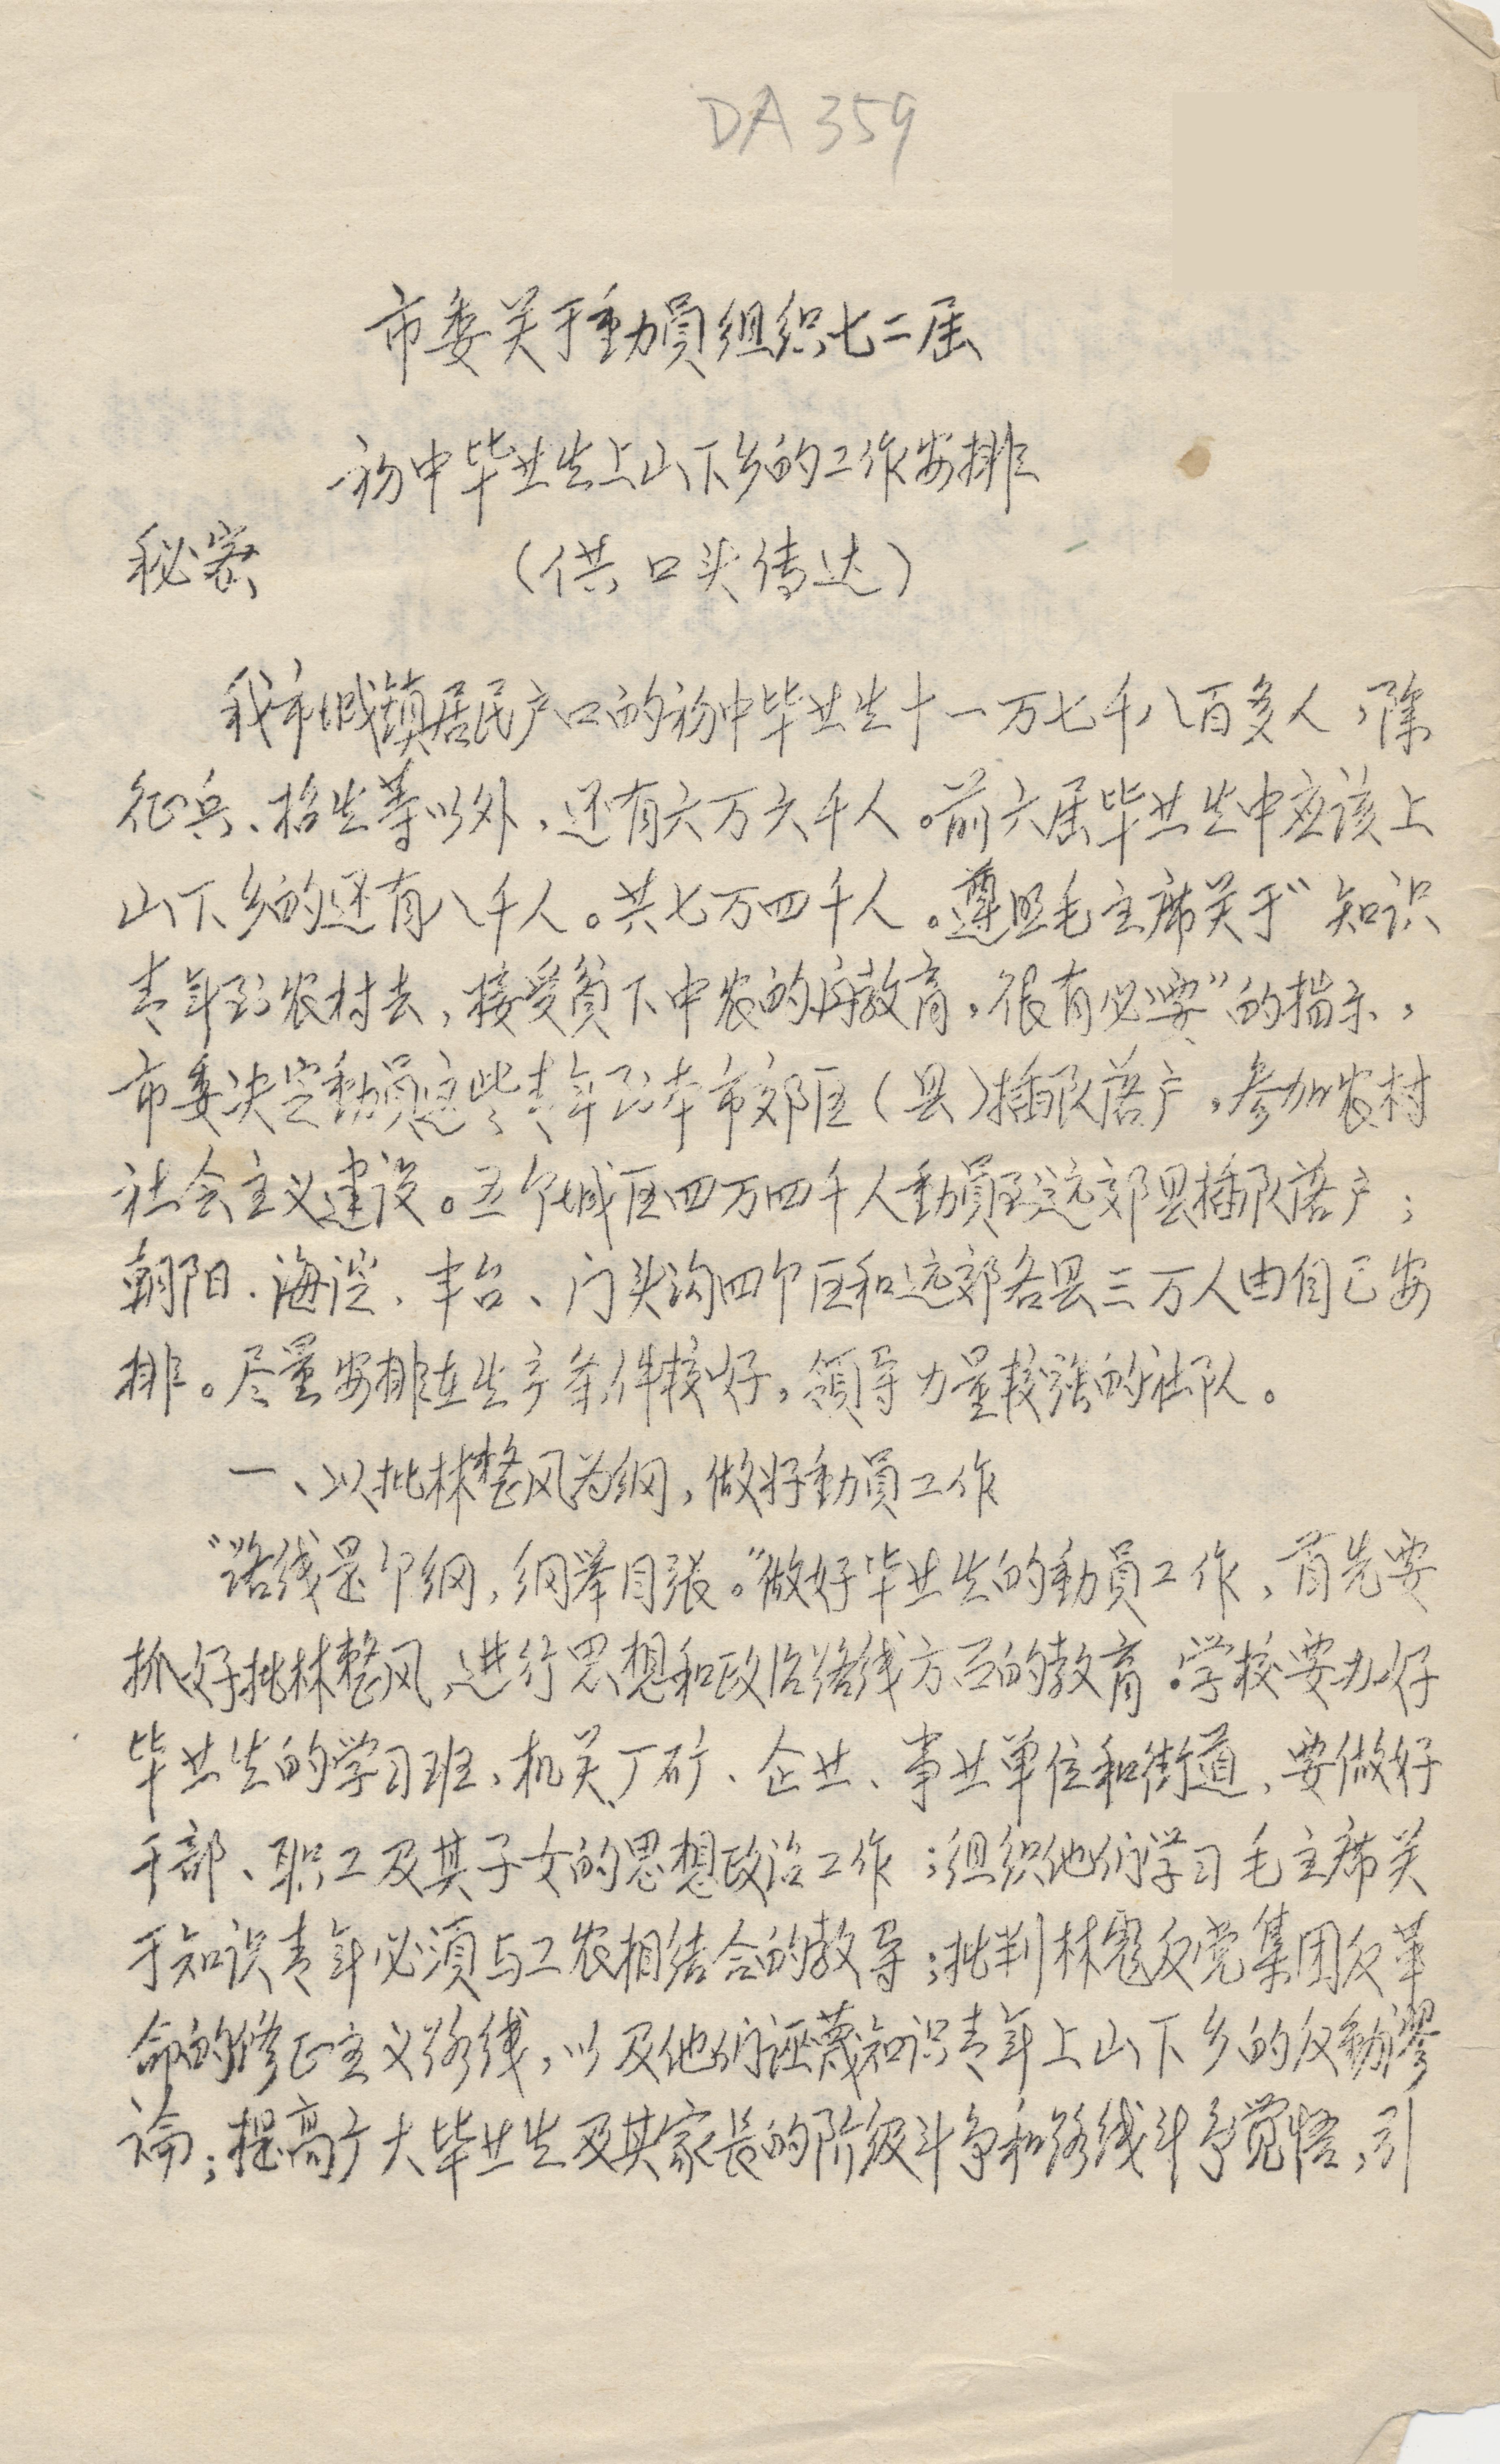 DA359
市委关于動員组织七二届
初中毕业生上山下乡的工作安排
秘密
（供口头传达）
我市城镇居民户口的初中毕业生十一万七千八百多人，除
征兵、招生等以外，还有六万六千人。前六届毕业生中应该上
山下乡的还有八千人。共七万四千人。遵照毛主席关于“知识
青年到农村去，接受贫下中农的再教育，很有必要”的指示，
市委决定動員这些青年到本市郊区（县）插队落户，参加农村
社会主义建设。五个城区四万四千人動員到远郊县插队落户；
朝阳、海淀、丰台、门头沟四个区和远郊各县三万人由自己安
排。尽量安排在生产条件较好，领导力量较强的社队。
一、以批林整风为纲，做好動員工作
“路线是个纲，纲举目张。”做好毕业生的動員工作，首先要
抓好批林整风，进行思想和政治路线方面的教育。学校要办好
毕业生的学习班，机关、厂矿、企业、事业单位和街道，要做好
干部、职工及其子女的思想政治工作；组织他们学习毛主席关
于知识青年必须与工农相结合的教导；批判林彪反党集团反革
命的修正主义路线，以及他们诬蔑知识青年上山下乡的反動谬
论；提高广大毕业生及其家长的阶级斗争和路线斗争觉悟，引